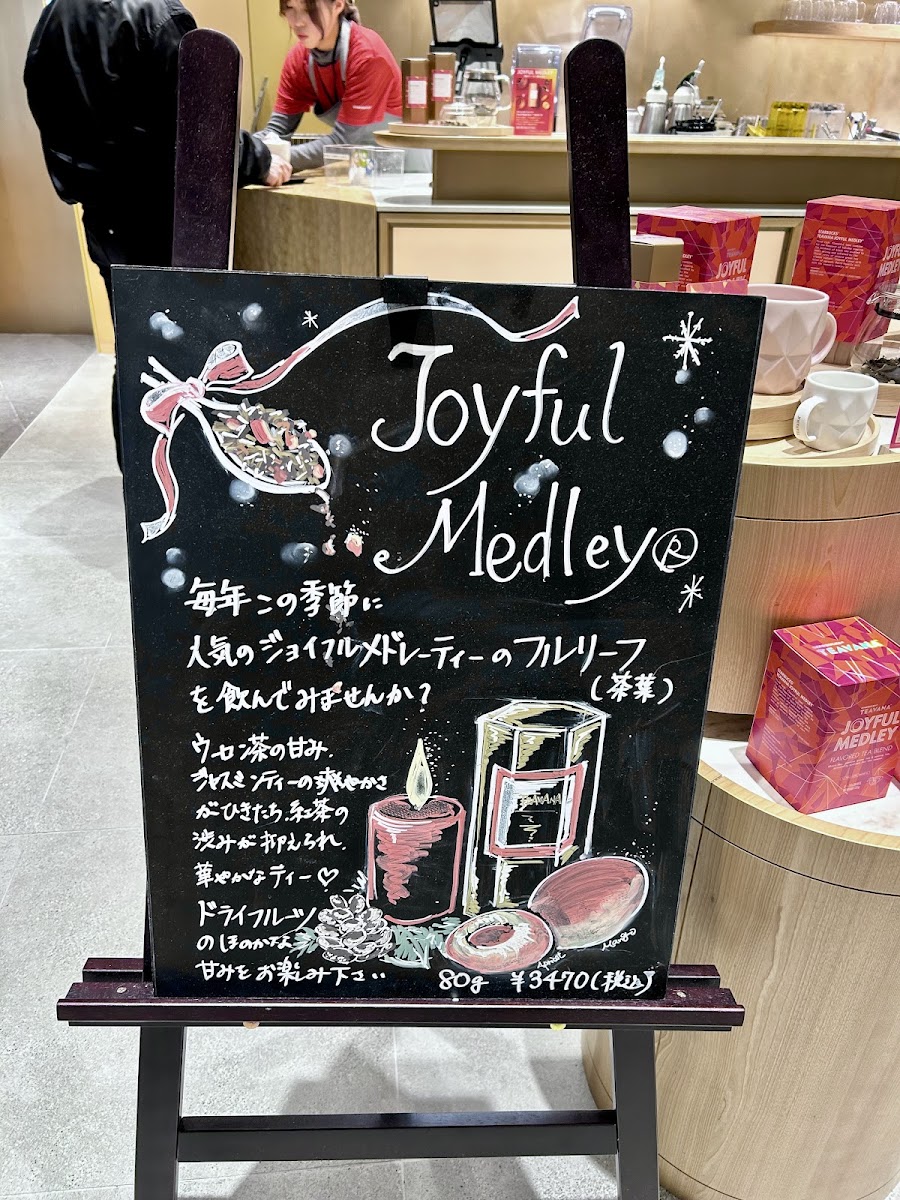 JOYFUL
MEDLEY
STARBUCKS
TEAVANA JOYFUL MEDLEY
JOYFUL
JOYFUL
MEDLEY
Joyful
Medley®
毎年この季節に
人気のジョイフルメドレーティーのフルリーフ
(茶葉)
を飲んでみませんか?
ウーロン茶の甘み
ジャスミンティーの爽やかさ
がひきたち、紅茶の
渋みが抑えられ、
華やかなティー♡
ドライフルーツ
のほのかな
甘みをお楽しみ下さい
TEAVANA
Apricot
Mango
80g ¥3470(税込)
TEAVANA
TEAVANA
JOYFUL
MEDLEY
FLAVORED TEA BLEND